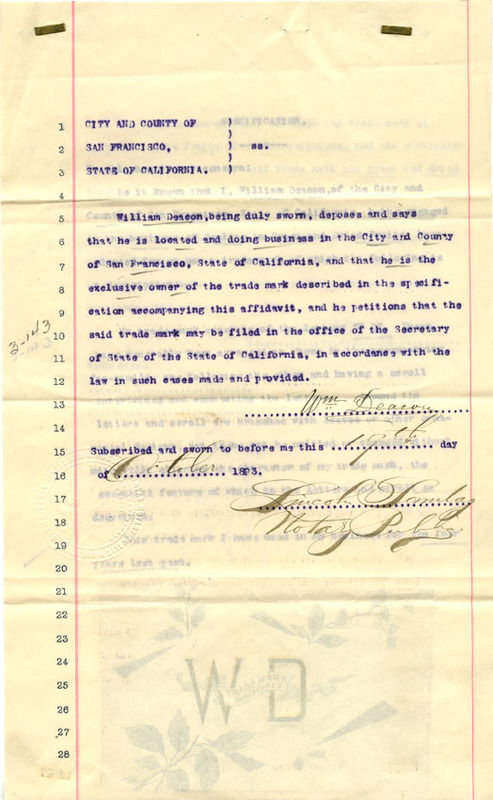 CITY AND COUNTY OF )
)
SAN FRANCISCO, ) ss.
)
STATE OF CALIFORNIA. )
William Deacon, being duly sworn, deposes and says
that he is located and doing business in the City and County
of San Francisco, State of California, and that he is the
exclusive owner of the trade mark described in the specifi-
cation accompanying this affidavit, and he petitions that the
said trade mark may be filed in the office of the Secretary
of State of the State of California, in accordance with the
law in such cases made and provided.
Wm Deacon
Subscribed and sworn to before me this day
of October 1893.
Notary Public
3-143
3-143
1
2
3
4
5
6
7
8
9
10
11
12
13
14
15
16
17
18
19
20
21
22
23
24
25
26
27
28